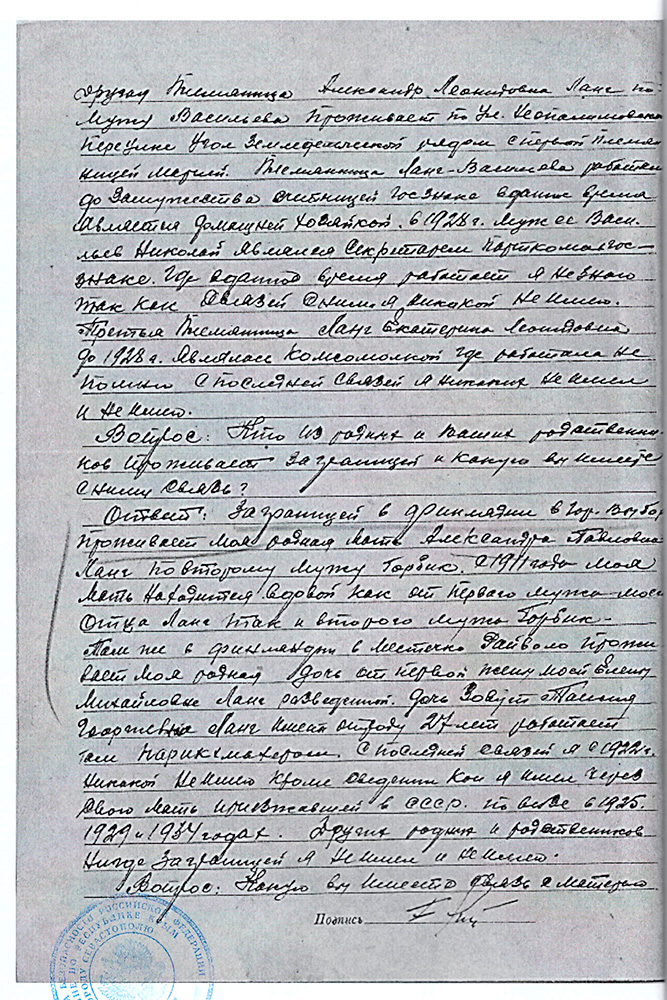 другая Племянница Александр Леонидовна Ланг по
Мужу Васильева Проживает по Ул. Неопалимовско
Переулке Угол Земледельческой рядом с первой Племя
ницей Марией. Племянница Ланг-Васильева работала
до Замужества счетницей Госзнака в данное время
Является домашней хозяйкой. в 1928 г. Муж ее Васи-
льев Николай Являлся Секретарем Парткома гос-
знака. Где в данное время работает я не знаю
так как связей с ним я никакой не имею.
Третья Племянница Ланг Екатерина Леонидовна
до 1928 г. Являлась Комсомолкой где работала не
помню с последней связей я никаких не имел
и не имею.
Вопрос: Кто из родных и Ваших родственни-
ков проживает заграницей и какую вы имеете
с ними связь?
Ответ: Заграницей в финляндии в гор. Выбор
проживает моя родная мать Александра Павловна
Ланг по второму мужу Горбик. с 1911 года моя
мать находится вдовой как от первого мужа - моего
отца Ланг так и второго мужа Горбик -
Там же в финляндии в местечке Райволо прожи
вает моя родная дочь от первой жены моей Елены
Михайловны Ланг разведенной. дочь Зовут Таисия
Георгиевна Ланг имеет отроду 27 лет работает
там парикмахером. С последней связей я с 1922 г.
никакой не имею кроме сведений кои я имел через
свою мать приезжавшей в СССР. по визе в 1925.
1929 и 1934 годах. Других родных и родственников
нигде заграницей я не имел и не имею.
Вопрос: Какую вы имеете связь с матерью
Подпись
БЕЗОПАСНОСТИ РОССИЙСКОЙ ФЕДЕРАЦИИ
ПО РЕСПУБЛИКЕ КРЫМ
ГОРОДУ СЕВАСТОПОЛЮ